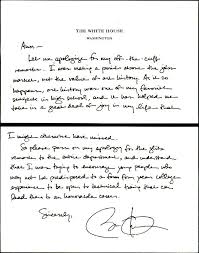 THE WHITE HOUSE
WASHINGTON
Ann —
Let me apologize for my off-the-cuff
remarks. I was making a point about the jobs
market, not the value of art history. As it so
happens, art history was one of my favorite
subjects in high school, and it has helped me
take in a great deal of joy in my life that
I might otherwise have missed.
So please pass on my apology for the glib
remark to the entire department, and understand
that I was trying to encourage young people who
may not be predisposed to a four year college
experience to be open to technical training that can
lead them to an honorable career.
Sincerely,